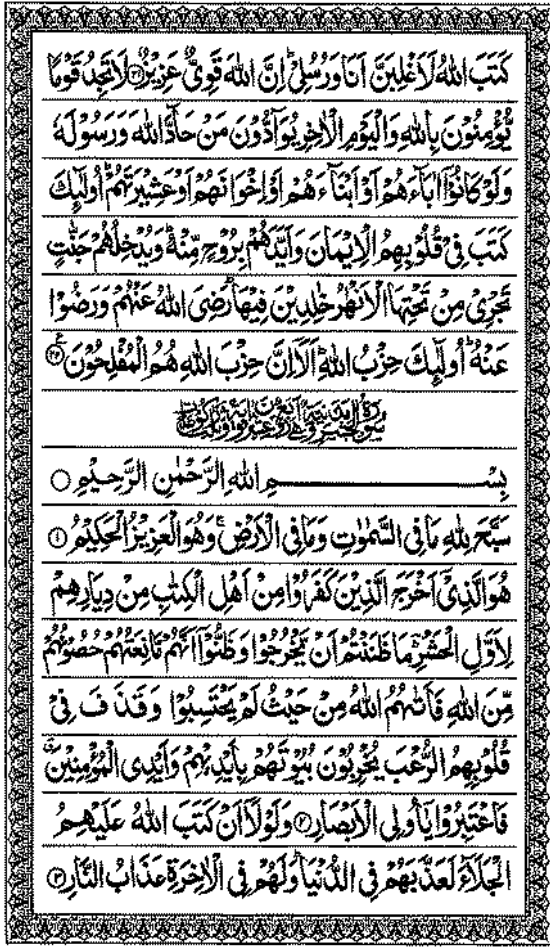 كَتَبَ اللّٰهُ لَاَغْلِبَنَّ اَنَا وَرُسُلِيْ ؕ اِنَّ اللّٰهَ قَوِيٌّ عَزِيْزٌ ۝۲۱ لَا تَجِدُ قَوْمًا
يُّؤْمِنُوْنَ بِاللّٰهِ وَالْيَوْمِ الْاٰخِرِ يُوَآدُّوْنَ مَنْ حَآدَّ اللّٰهَ وَرَسُوْلَهٗ
وَلَوْ كَانُوْۤا اٰبَآءَهُمْ اَوْ اَبْنَآءَهُمْ اَوْ اِخْوَانَهُمْ اَوْ عَشِيْرَتَهُمْ ؕ اُولٰٓئِكَ
كَتَبَ فِيْ قُلُوْبِهِمُ الْاِيْمَانَ وَاَيَّدَهُمْ بِرُوْحٍ مِّنْهُ ؕ وَيُدْخِلُهُمْ جَنّٰتٍ
تَجْرِيْ مِنْ تَحْتِهَا الْاَنْهٰرُ خٰلِدِيْنَ فِيْهَا ؕ رَضِيَ اللّٰهُ عَنْهُمْ وَرَضُوْا
عَنْهُ ؕ اُولٰٓئِكَ حِزْبُ اللّٰهِ ؕ اَلَاۤ اِنَّ حِزْبَ اللّٰهِ هُمُ الْمُفْلِحُوْنَ ۝۲۲
بِسْمِ اللّٰهِ الرَّحْمٰنِ الرَّحِيْمِ ۝
سَبَّحَ لِلّٰهِ مَا فِي السَّمٰوٰتِ وَمَا فِي الْاَرْضِ ۚ وَهُوَ الْعَزِيْزُ الْحَكِيْمُ ۝۱
هُوَ الَّذِيْۤ اَخْرَجَ الَّذِيْنَ كَفَرُوْا مِنْ اَهْلِ الْكِتٰبِ مِنْ دِيَارِهِمْ
لِاَوَّلِ الْحَشْرِ ؕ مَا ظَنَنْتُمْ اَنْ يَّخْرُجُوْا وَظَنُّوْۤا اَنَّهُمْ مَّانِعَتُهُمْ حُصُوْنُهُمْ
مِّنَ اللّٰهِ فَاَتٰىهُمُ اللّٰهُ مِنْ حَيْثُ لَمْ يَحْتَسِبُوْا وَقَذَفَ فِيْ
قُلُوْبِهِمُ الرُّعْبَ يُخْرِبُوْنَ بُيُوْتَهُمْ بِاَيْدِيْهِمْ وَاَيْدِي الْمُؤْمِنِيْنَ ۗ
فَاعْتَبِرُوْا يٰۤاُولِي الْاَبْصَارِ ۝۲ وَلَوْلَاۤ اَنْ كَتَبَ اللّٰهُ عَلَيْهِمُ
الْجَلَآءَ لَعَذَّبَهُمْ فِي الدُّنْيَا ؕ وَلَهُمْ فِي الْاٰخِرَةِ عَذَابُ النَّارِ ۝۳